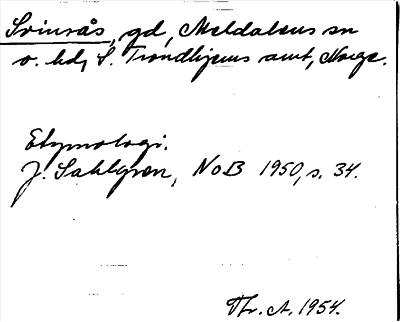 Svinsås, gd, Meldalens sn
o. hd, S. Trondhjems amt, Norge.
Etymologi.
J. Sahlgren, NoB 1950, s. 34.
Thr. A. 1954.